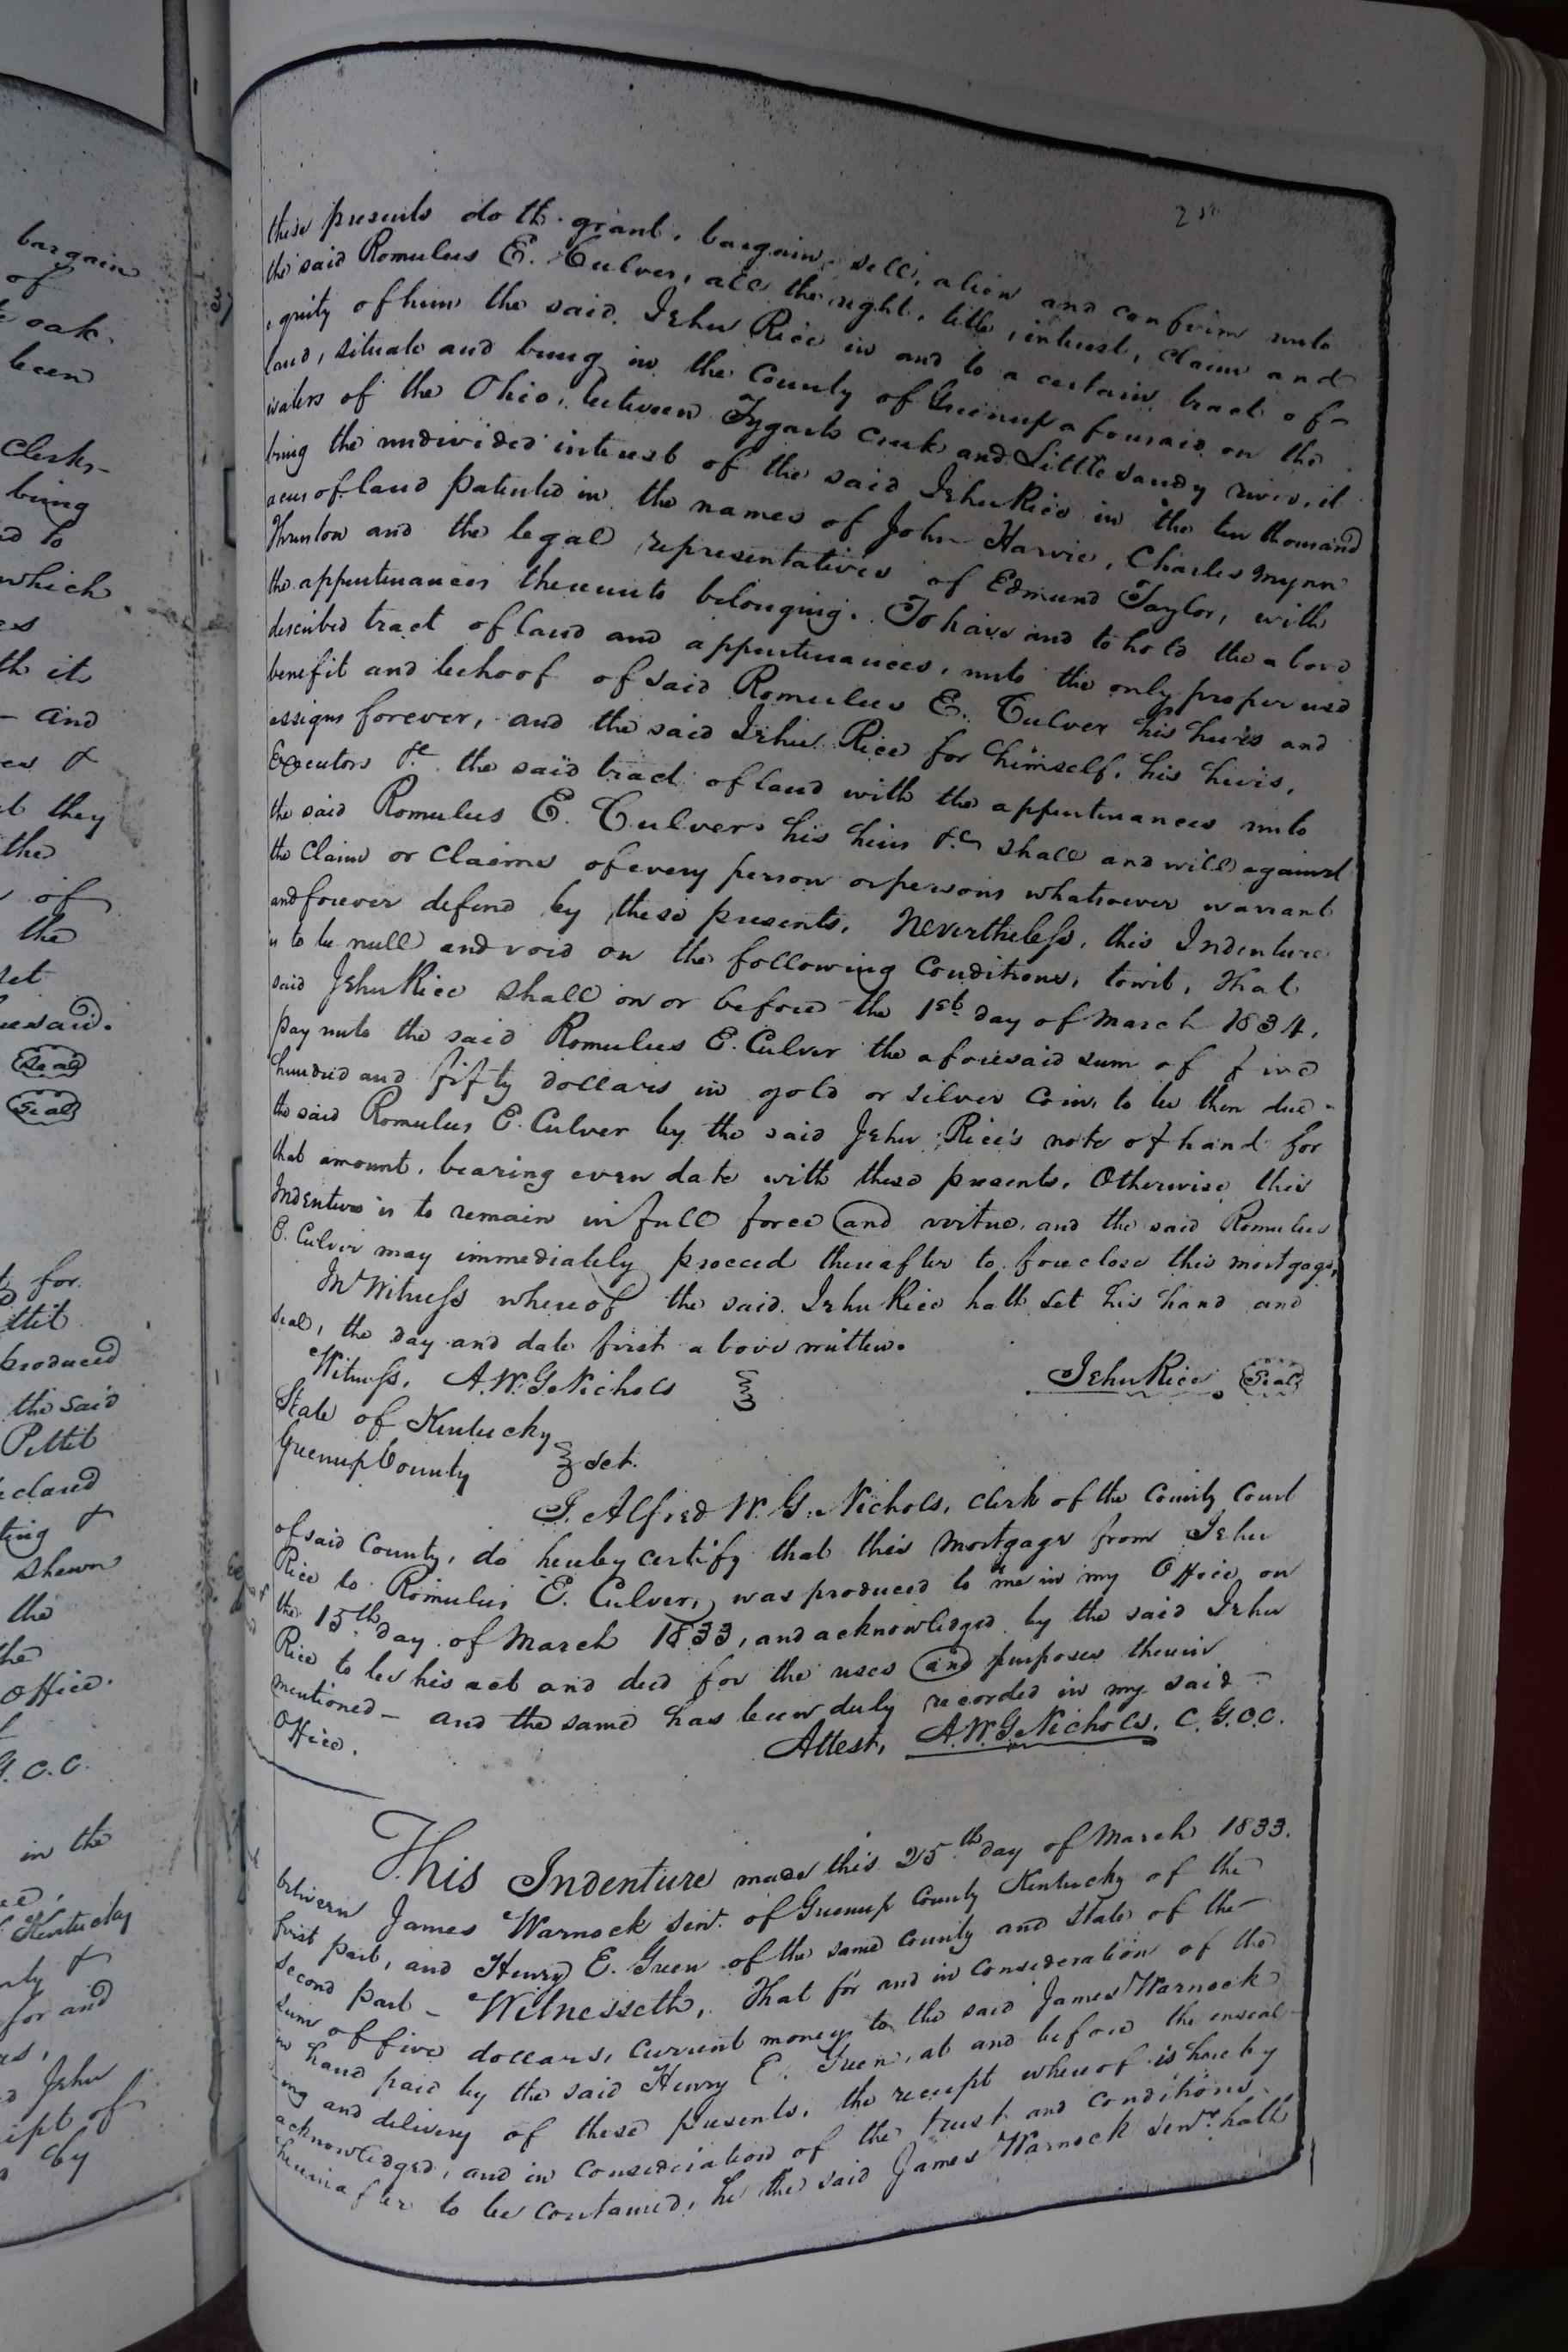 bargain
of
oak.
been
Clerks
being
to
which
th it
and
&
they
the
of
the
set
Seal
Seal
for
produced
the said
Pettit
&
shewn
the
office.
in the
Kentucky
&
for and
Jehu
of
by
these presents doth grant, bargain, sell, alien and confirm unto
the said Romulus E. Culver, all the right, title, interest, claim and
equity of him the said Jehu Rice in and to a certain tract of
land, situate and being in the County of Greenup aforesaid on the
waters of the Ohio, between Tygarts Creek and Little Sandy river, it
being the undivided interest of the said Jehu Rice in the ten thousand
acres of land patented in the names of John Harvie, Charles Mynn
Thruston and the legal representatives of Edmund Taylor, with
the appurtenances thereunto belonging. To have and to hold the above
described tract of land and appurtenances, unto the only proper use
benefit and behoof of said Romulus E. Culver his heirs and
assigns forever, and the said Jehu Rice for himself, his heirs,
Executors &c the said tract of land with the appurtenances unto
the said Romulus E. Culver his heirs &c shall and will against
the claim or claims of every person or persons whatsoever warrant
and forever defend by these presents. Nevertheless, this Indenture
is to be null and void on the following conditions, towit, That
said Jehu Rice shall on or before the 1st day of March 1834,
pay unto the said Romulus E. Culver the aforesaid sum of five
hundred and fifty dollars in gold or silver coin, to be then due
the said Romulus E. Culver by the said Jehu Rice's note of hand for
that amount, bearing even date with these presents. Otherwise this
Indenture is to remain in full force and virtue, and the said Romulus
E. Culver may immediately proceed thereafter to foreclose this mortgage.
In Witness whereof the said Jehu Rice hath set his hand and
seal, the day and date first above written.
Witness, A.W.G. Nichols
Jehu Rice Seal
State of Kentucky
Greenup County Sct.
I. Alfred W. G. Nichols, Clerk of the County Court
of said County, do hereby certify that this Mortgage from Jehu
Rice to Romulus E. Culver, was produced to me in my Office, on
the 15th day of March 1833, and acknowledged by the said Jehu
Rice to be his act and deed for the uses and purposes therein
mentioned – and the same has been duly recorded in my said
Office.
Attest, A.W.G. Nichols. C.G.C.C.
This Indenture made this 25th day of March 1833.
between James Warnock Senr. of Greenup County Kentucky of the
first part, and Henry E. Green of the same county and state of the
second part – Witnesseth, That for and in consideration of the
sum of five dollars, current money to the said James Warnock
in hand paid by the said Henry E. Green, at and before the enseal-
ing and delivery of these presents, the receipt whereof is hereby
acknowledged, and in consideration of the trust and conditions
hereinafter to be contained, he the said James Warnock Senr. hath